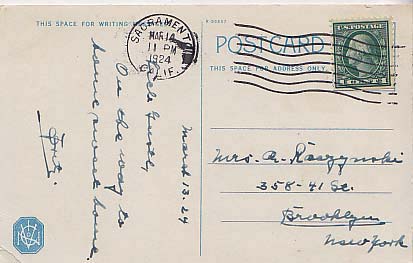 THIS SPACE FOR WRITING
SACRAMENTO
MAR 14
11 PM
1924
CALIF.
March 13. 24
On the way to
home sweet home.
POSTCARD
THIS SPACE FOR ADDRESS ONLY
U.S. POSTAGE
1 CENT 1
Mrs. A. Raszynski
358-41 St.
Brooklyn
New York